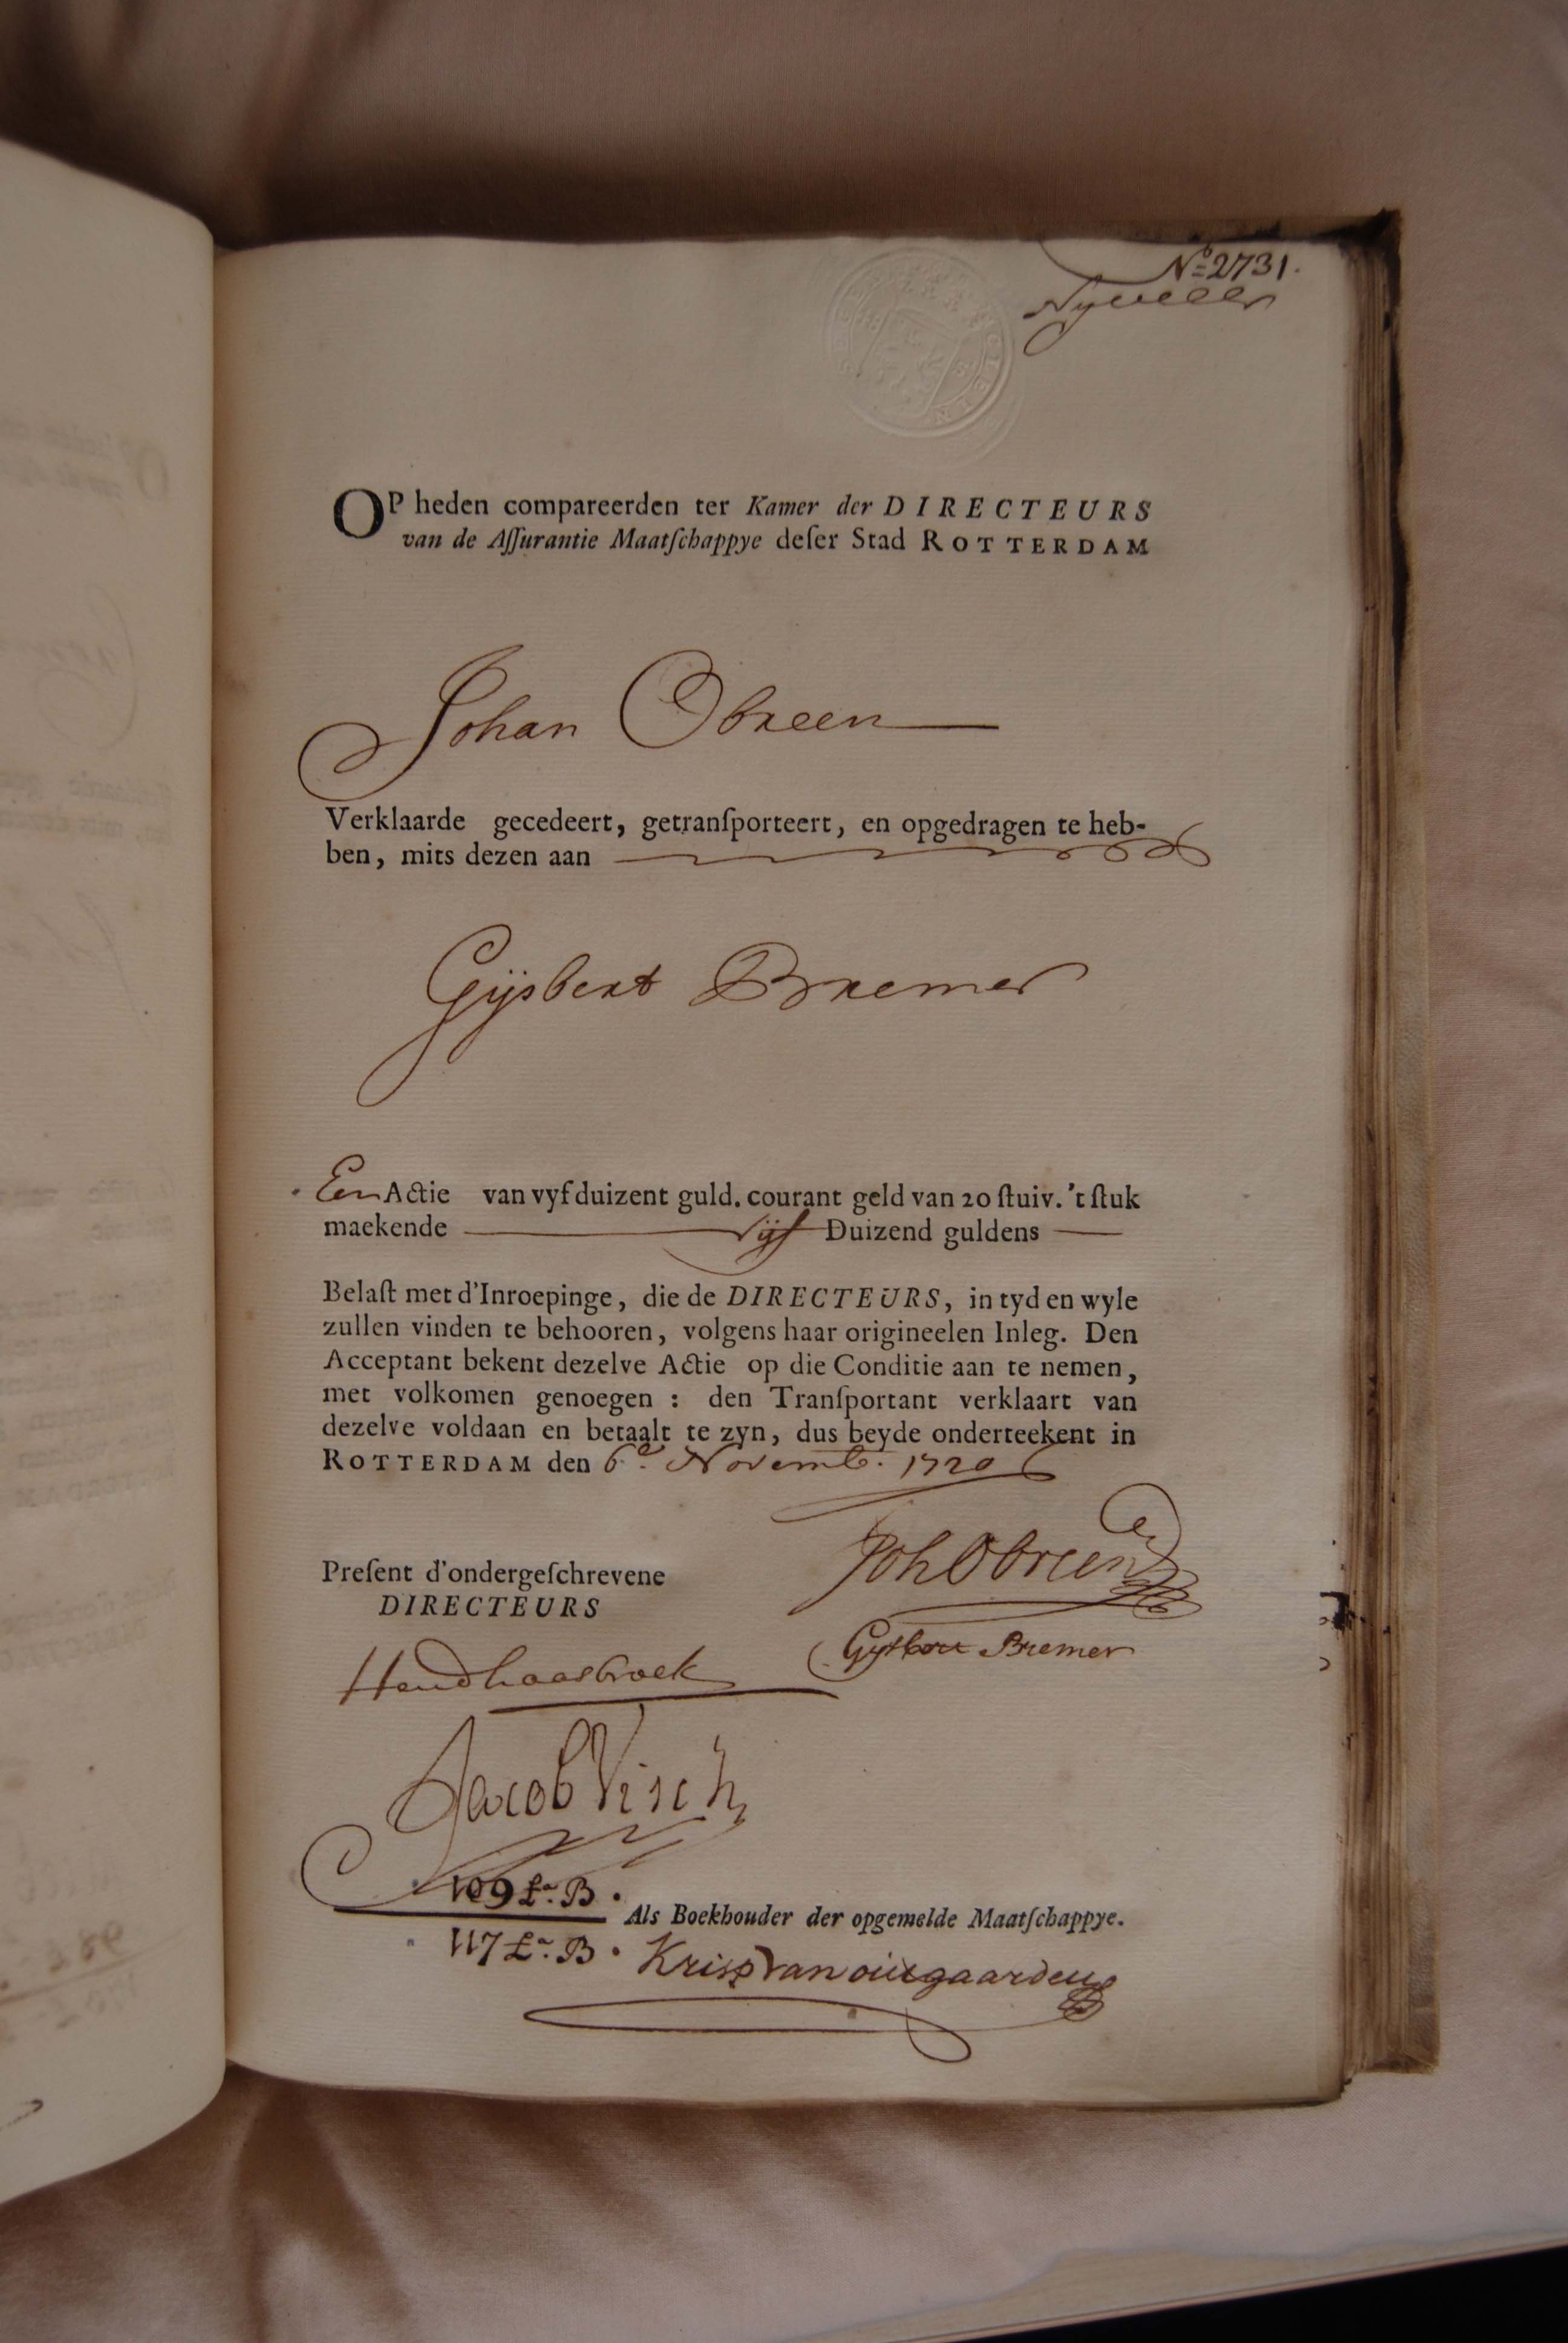 No 2731.
OP heden compareerden ter Kamer der DIRECTEURS
van de Aſſurantie Maatſchappye deſer Stad ROTTERDAM
Johan Obreen
Verklaarde gecedeert, getranſporteert, en opgedragen te heb-
ben, mits dezen aan
Gijsbert Bremer
Een Actie van vyf duizent guld. courant geld van 20 ſtuiv. 't ſtuk
maekende Vijf Duizend guldens
Belaſt met d'Inroepinge, die de DIRECTEURS, in tyd en wyle
zullen vinden te behooren, volgens haar origineelen Inleg. Den
Acceptant bekent dezelve Actie op die Conditie aan te nemen,
met volkomen genoegen : den Tranſportant verklaart van
dezelve voldaan en betaalt te zyn, dus beyde onderteekent in
ROTTERDAM den 6e. Novemb. 1720
Joh Obreen
Preſent d'ondergeſchrevene
DIRECTEURS
Gysbert Bremer
Hend haasbroek
Jacob Visch
109 Lr. B.
Als Boekhouder der opgemelde Maatſchappye.
117 Lr. B. Krisp Van outgaarden